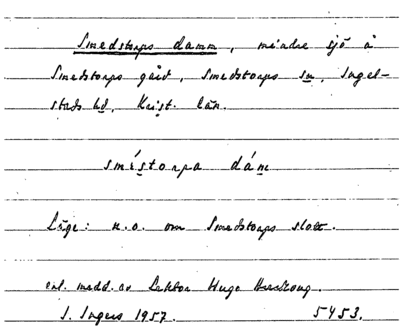 Smedstorps damm, mindre sjö å
Smedstorps gård, Smedstorps sn, Ingel-
stads hd, Krist. län.
smístorpa dám
Läge: n.o. om Smedstorps slott.
enl. medd. av Lektor Hugo
I. Ingers 1957. 5453.